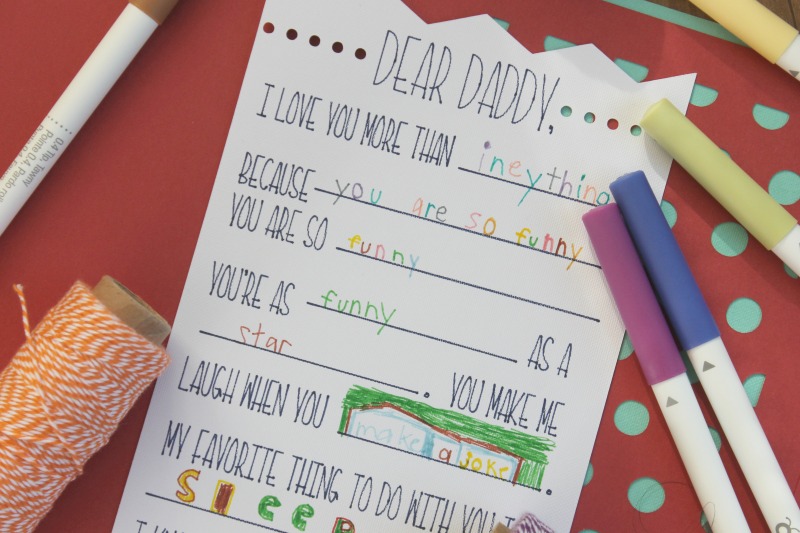 DEAR DADDY,
I LOVE YOU MORE THAN ineything
BECAUSE you are so funny
YOU ARE SO funny
YOU'RE AS funny AS A
star. YOU MAKE ME
LAUGH WHEN YOU make a joke.
MY FAVORITE THING TO DO WITH YOU I
Sleep
0.4 Tip, Tawny
Pointe 0.4, Pardo